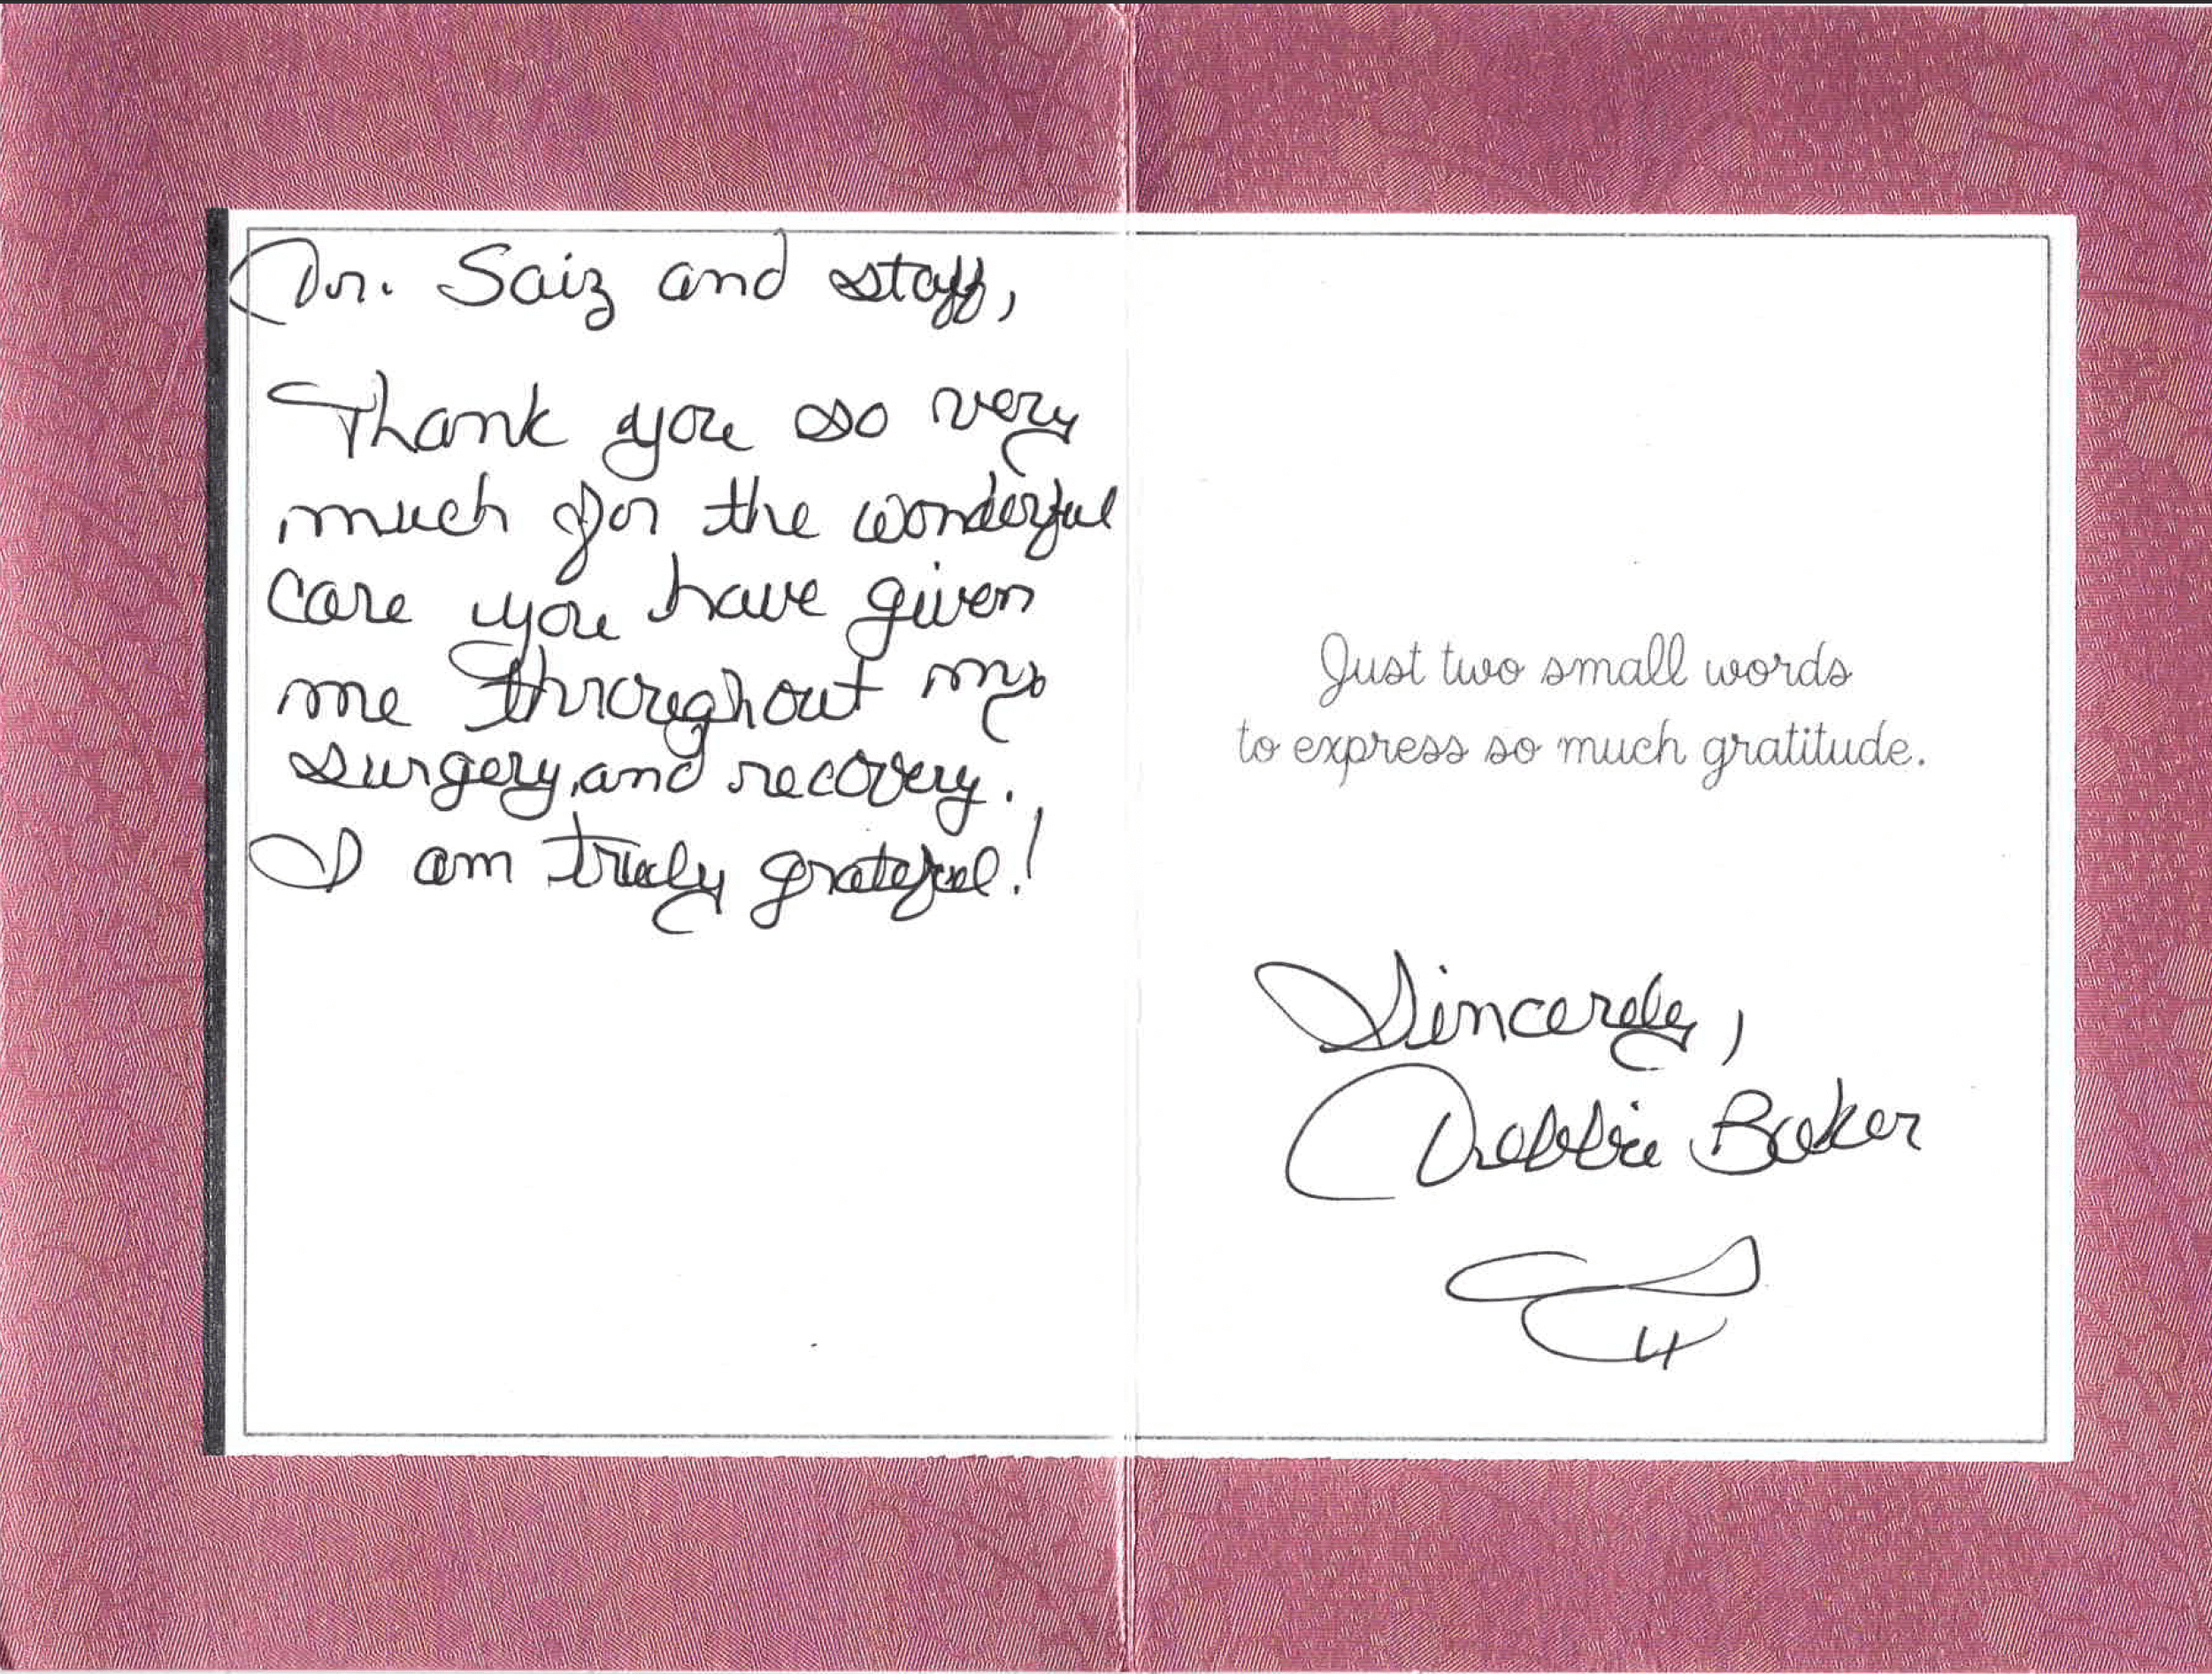 Dr. Saiz and staff,
Thank you so very
much for the wonderful
care you have given
me throughout my
surgery, and recovery.
I am truly grateful!
Just two small words
to express so much gratitude.
Sincerely,
Debbie Baker